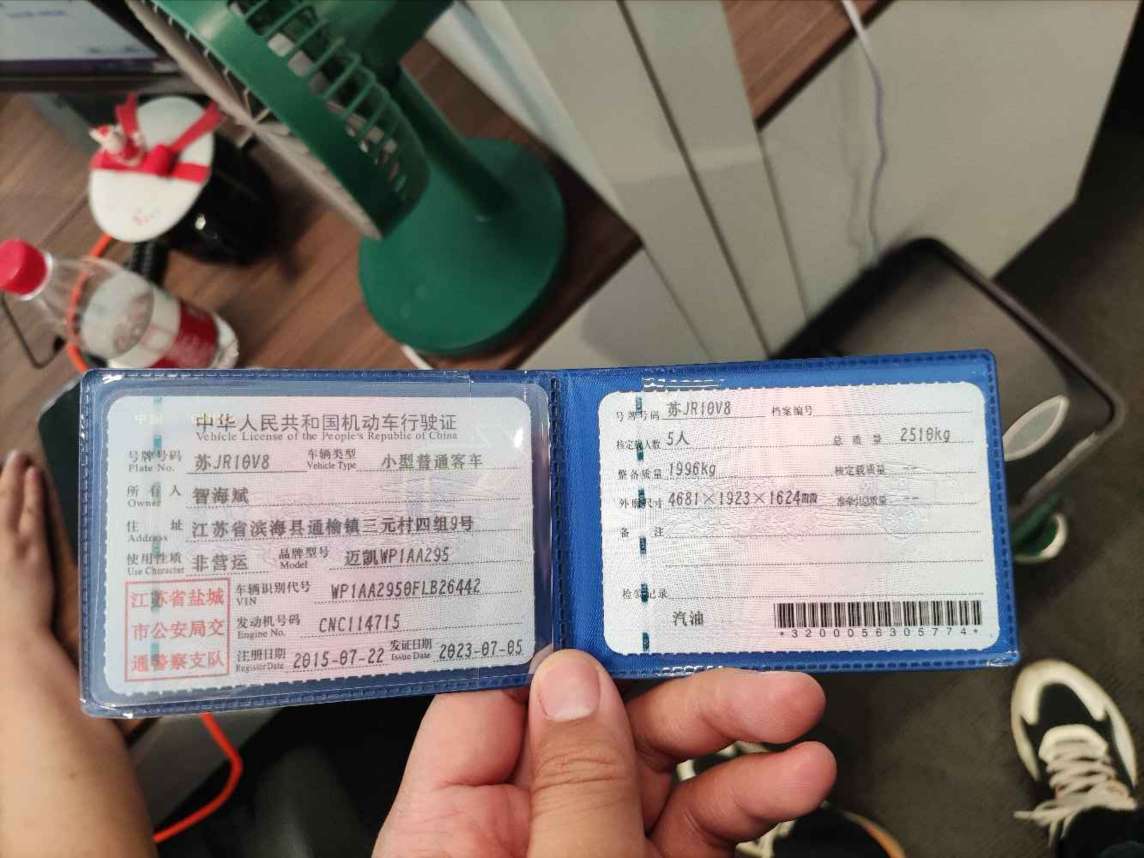 中华人民共和国机动车行驶证
Vehicle License of the People's Republic of China
号牌号码 苏JR10V8 车辆类型 小型普通客车
Plate No. Vehicle Type
所有人 智海斌
Owner
住址 江苏省滨海县通榆镇三元村四组9号
Address
使用性质 非营运 品牌型号 迈凯WP1AA295
Use Character Model
江苏省盐城
市公安局交
通警察支队
车辆识别代号 WP1AA2950FLB26442
VIN
发动机号码 CNC114715
Engine No.
注册日期 2015-07-22 发证日期 2023-07-05
Register Date Issue Date
号牌号码 苏JR10V8 档案编号
核定载人数 5人 总质量 2510kg
整备质量 1996kg 核定载质量 --
外廓尺寸 4681×1923×1624 准牵引总质量 --
备注
检验记录
汽油
*3200056305774*